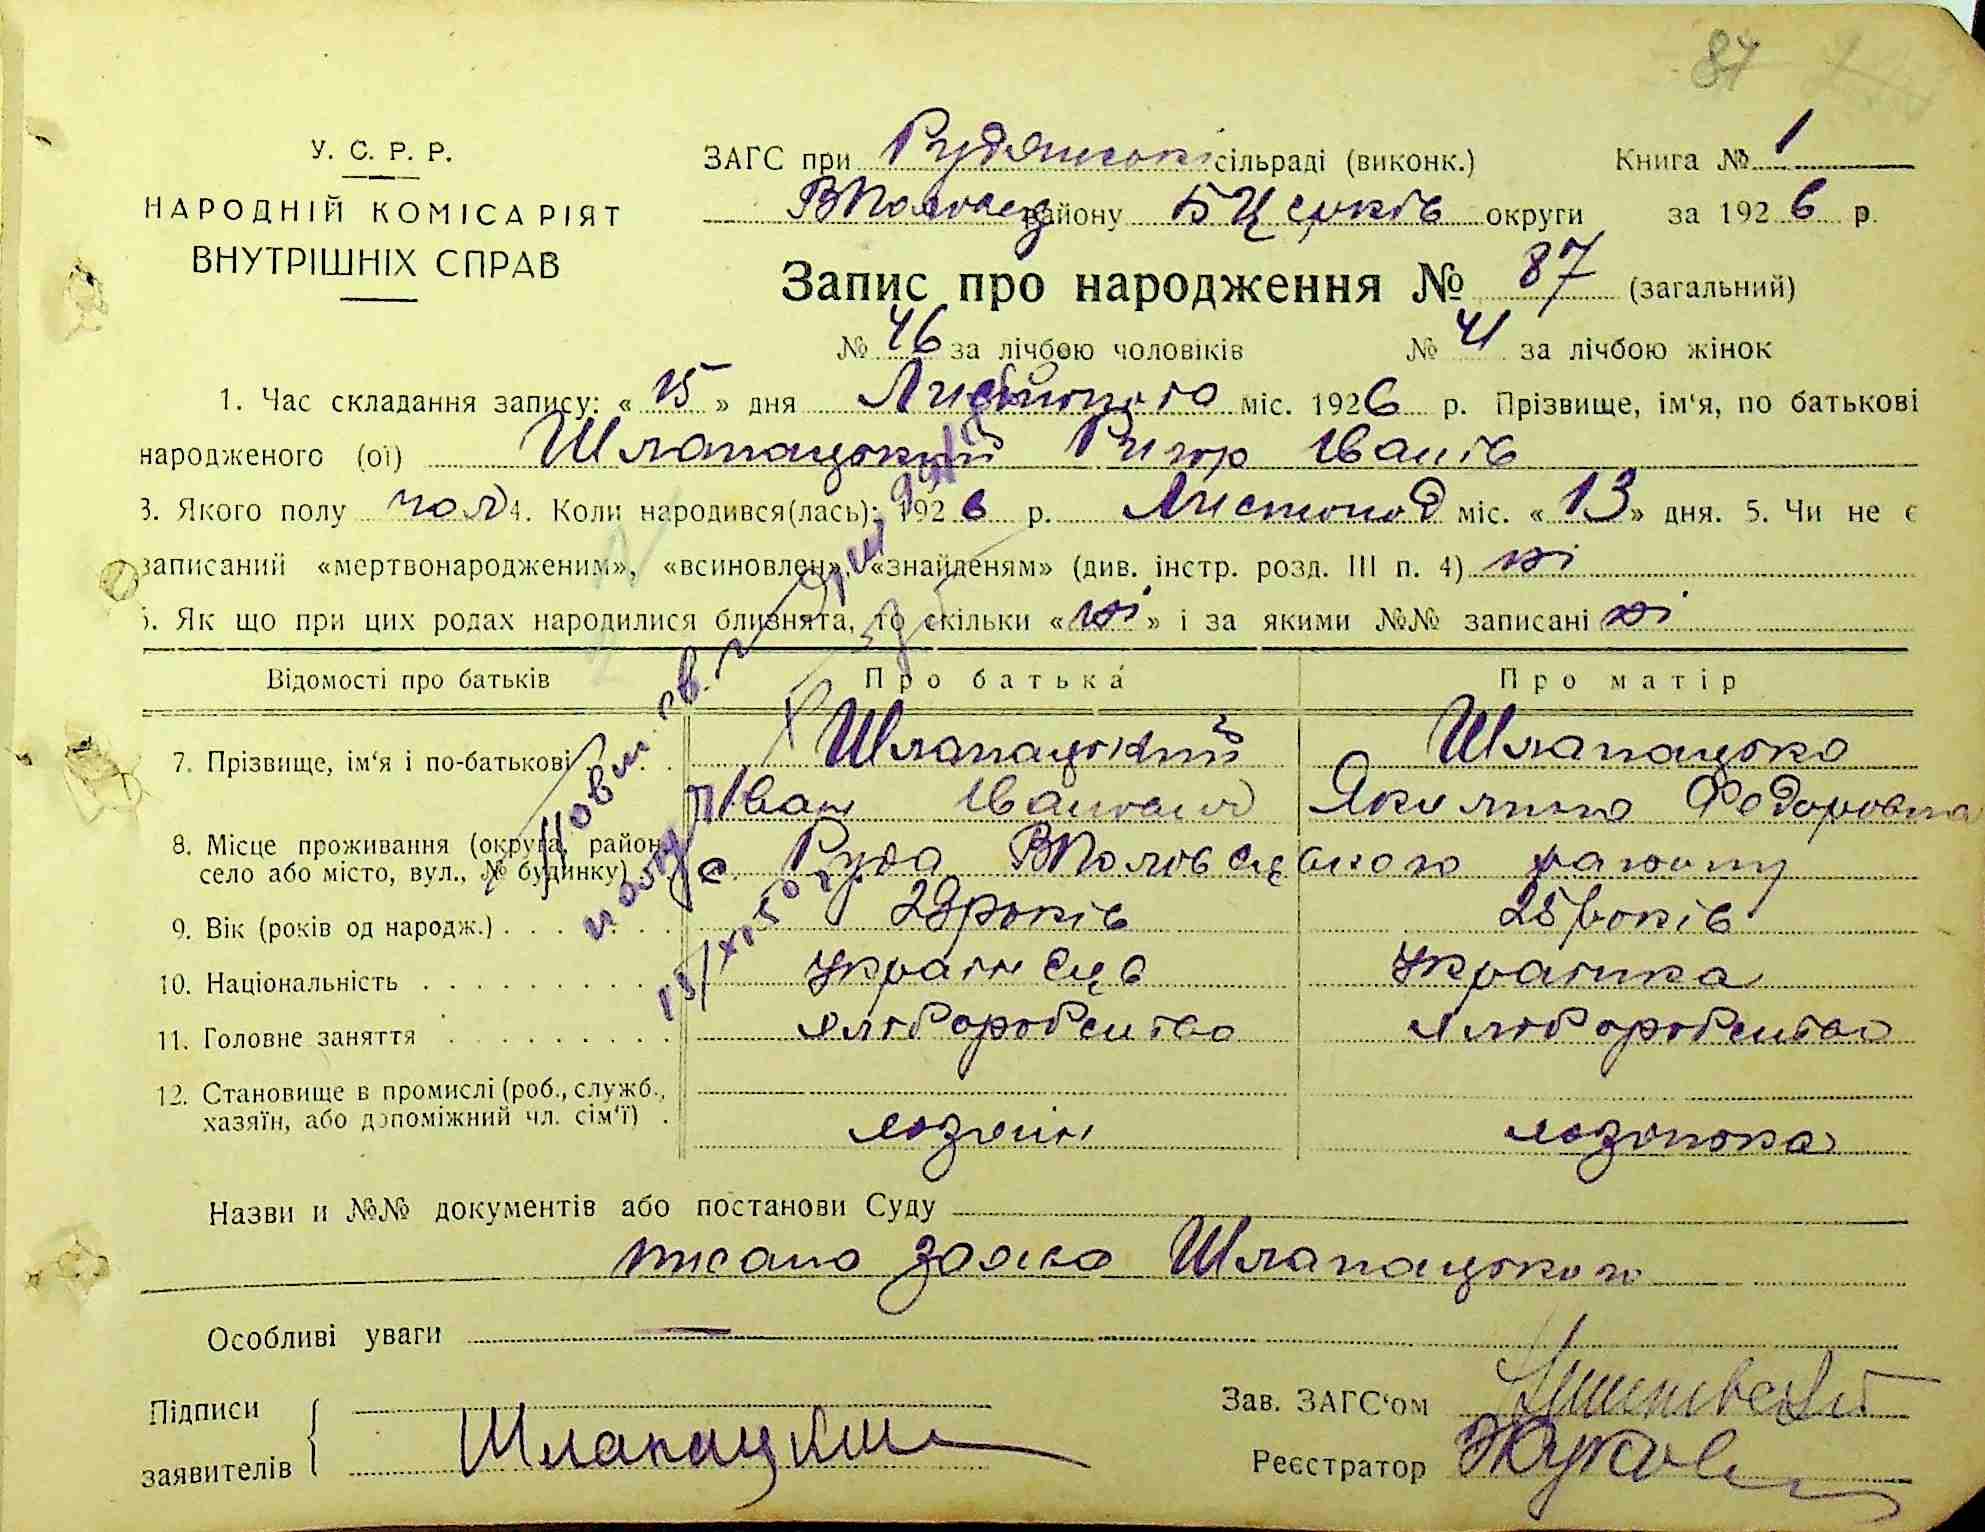 87
У. С. Р. Р.
НАРОДНІЙ КОМІСАРІЯТ
ВНУТРІШНІХ СПРАВ
ЗАГС при Рудянські сільраді (виконк.) Книга № 1
ВПоловец району БЦерків округи за 1926 р.
Запис про народження № 87 (загальний)
№ 46 за лічбою чоловіків № 41 за лічбою жінок
1. Час складання запису: « 15 » дня Листопада міс. 1926 р. Прізвище, ім'я, по батькові
народженого (ої) Шлапацький Григор Іванів
3. Якого полу чол 4. Коли народився(лась): 1926 р. Листопад міс. « 13 » дня. 5. Чи не є
записаний «мертвонародженим», «всиновлен», «знайденям» (див. інстр. розд. III п. 4) ні
6. Як що при цих родах народилися близнята, то скільки « ні » і за якими №№ записані ні
Відомості про батьків Про батька Про матір
7. Прізвище, ім'я і по-батькові Шлапацький Шлапацька
Іван Іванович Якилина Федоровна
8. Місце проживання (округа, район,
село або місто, вул., № будинку) с. Руда ВПоловецького району
9. Вік (років од народж.) 29 років 25 років
10. Національність українець українка
11. Головне заняття хліборобство хліборобство
12. Становище в промислі (роб., служб.,
хазяїн, або допоміжний чл. сім'ї) хозяїн хозяйка
Назви и №№ документів або постанови Суду
Шлапацького
Особливі уваги —
Підписи
заявителів Шлапацкий
Зав. ЗАГС'ом
Реєстратор Жуков